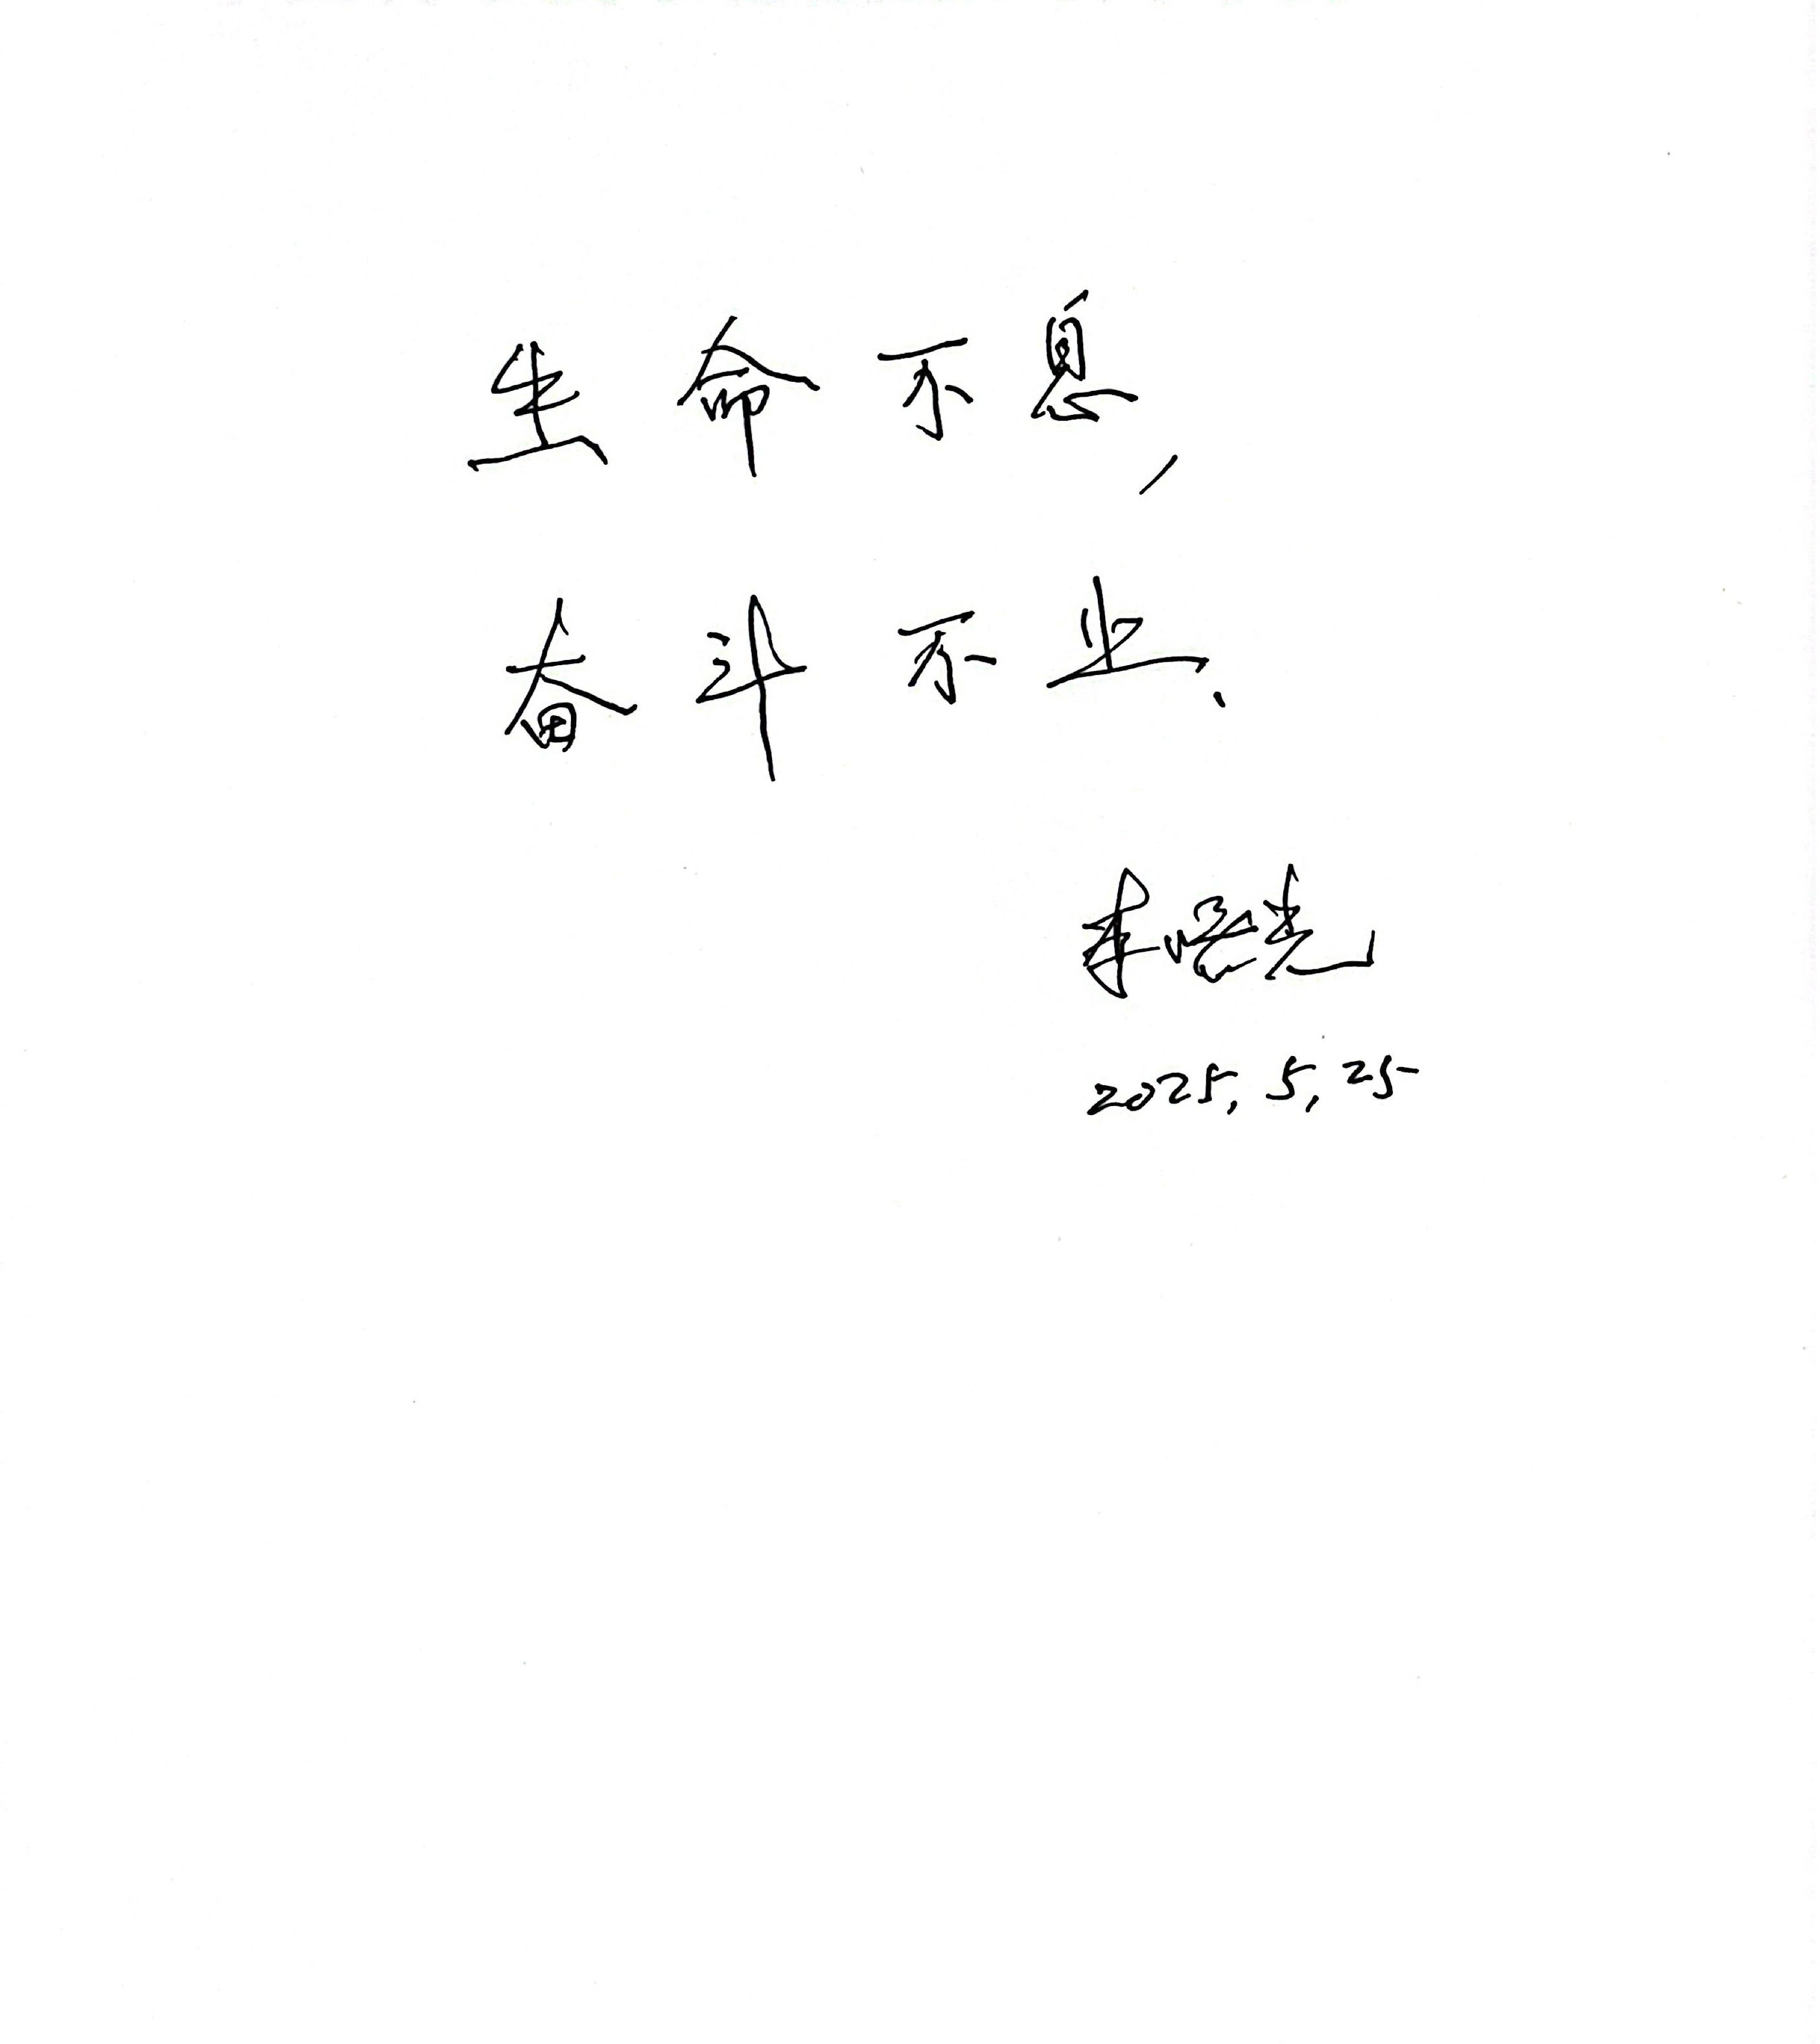 生命不息,
奋斗不止.
2025,5,25